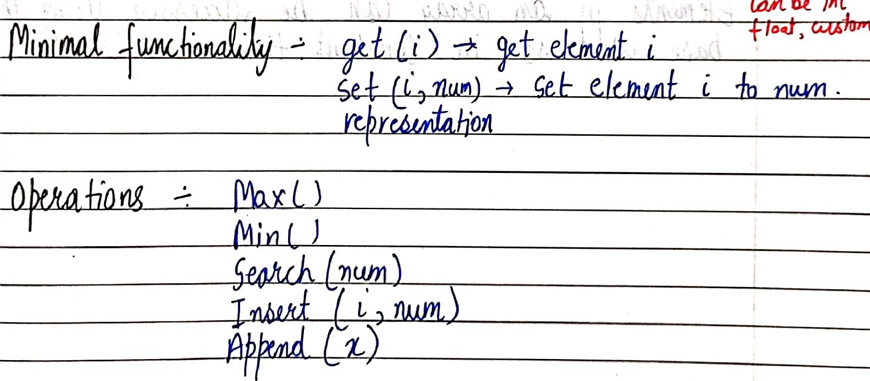 can be int
float, custom
Minimal functionality ÷ get (i) → get element i
set (i, num) → set element i to num.
representation
Operations ÷ Max()
Min()
Search (num)
Insert (i, num)
Append (x)